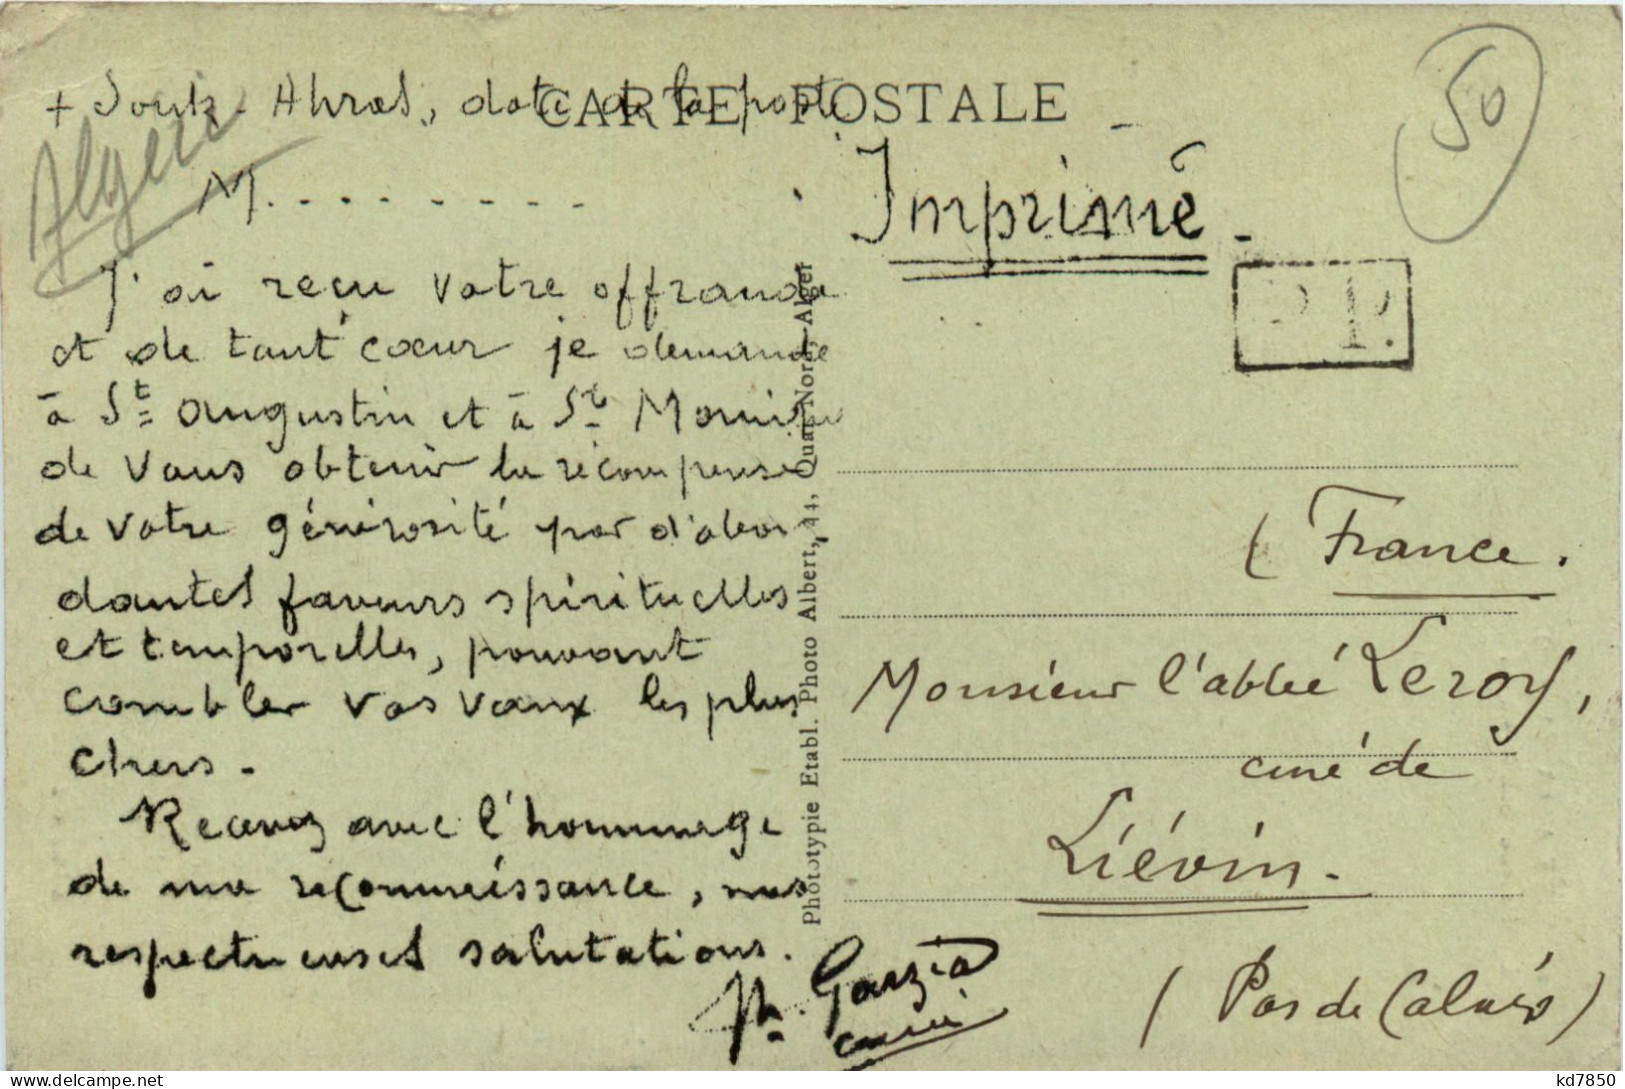 + Souk-Ahras, date de la poste
CARTE POSTALE
50
Algérie
M. . . . . . . . .
Imprimé.
P.P.
J'ai reçu votre offrande
et de tant cœur je demande
à St Augustin et à Ste Monique
de vous obtenir la récompense
de votre générosité par d'abon
dantes faveurs spirituelles
et temporelles, pouvant
combler vos vœux les plus
chers.
Recevez avec l'hommage
de ma reconnaissance, mes
respectueuses salutations.
Garzia
curé
Phototypie Etabl. Photo Albert, 11, Quai Nord - Alger
(France.
Monsieur l'abbé Leroy,
curé de
Liévin.
(Pas de Calais)
kd7850